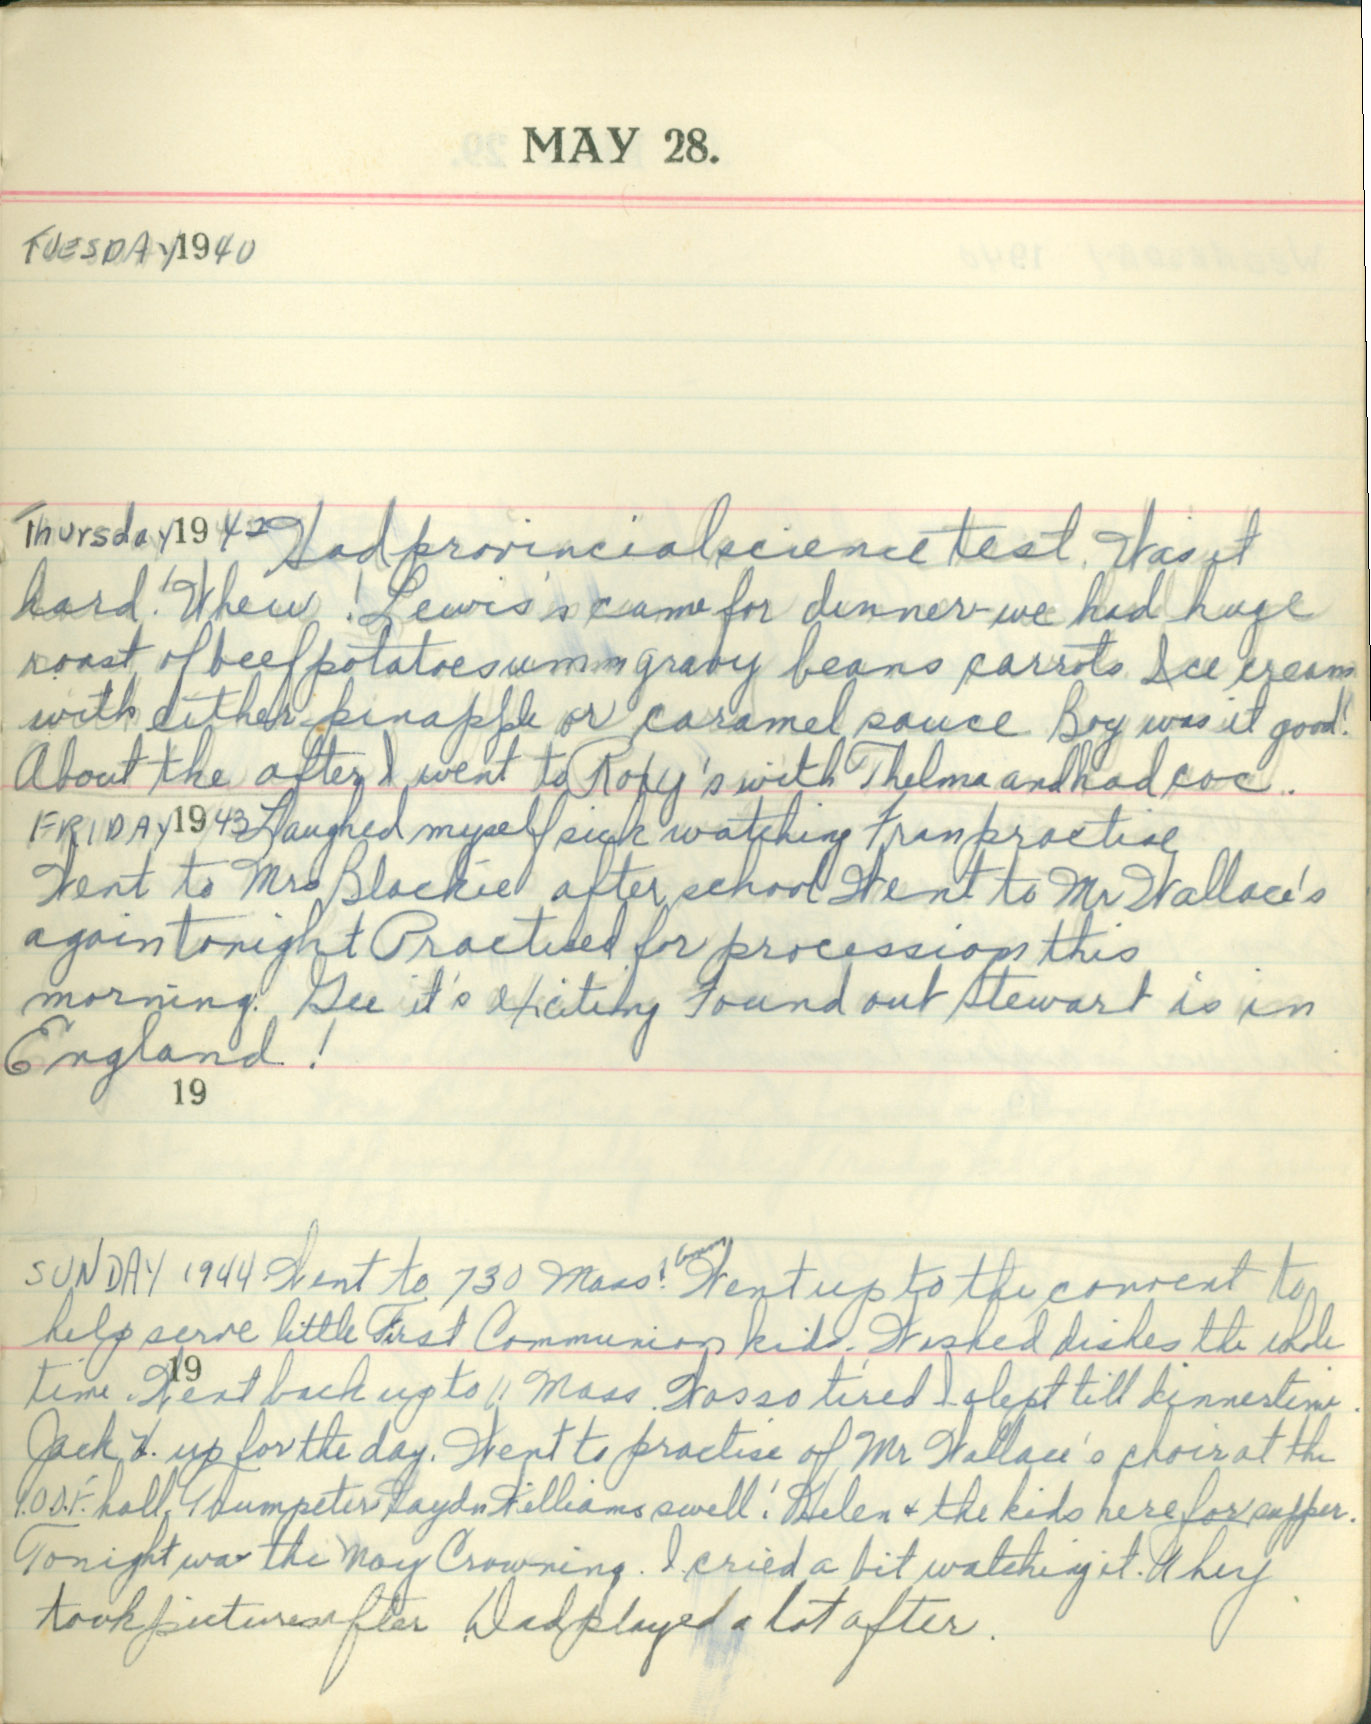 MAY 28.
TUESDAY 1940
Thursday 1942 Had provincial science test. Was it
hard! Whew! Lewis's came for dinner - we had huge
roast of beef potatoes ummm gravy beans carrots Ice cream
with either pinapple or caramel sauce Boy was it good!
About the after I went to with Thelma and had coc.
FRIDAY 1943 Laughed myself sick watching Fran practise
Went to Mrs Blackie after school Went to Mr Wallace's
again tonight Practised for procession this
morning. Gee it's exciting Found out Stewart is in
England!
19
SUNDAY 1944 Went to 730 Mass! Went up to the convent to
help serve little First Communion kids. Washed dishes the whole
19
time. Went back up to 11 Mass. Was so tired I slept till dinnertime.
Jack up for the day. Went to practise of Mr Wallace's choir at the
hall. Trumpeter Haydn Williams swell! Helen & the kids here for supper.
Tonight was the May Crowning. I cried a bit watching it.
took pictures after Dad played a lot after.